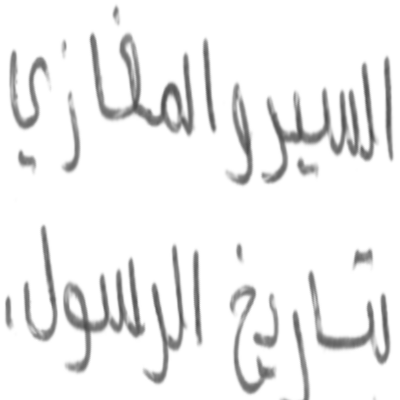 السير والمغازي
لتاريخ الرسول،